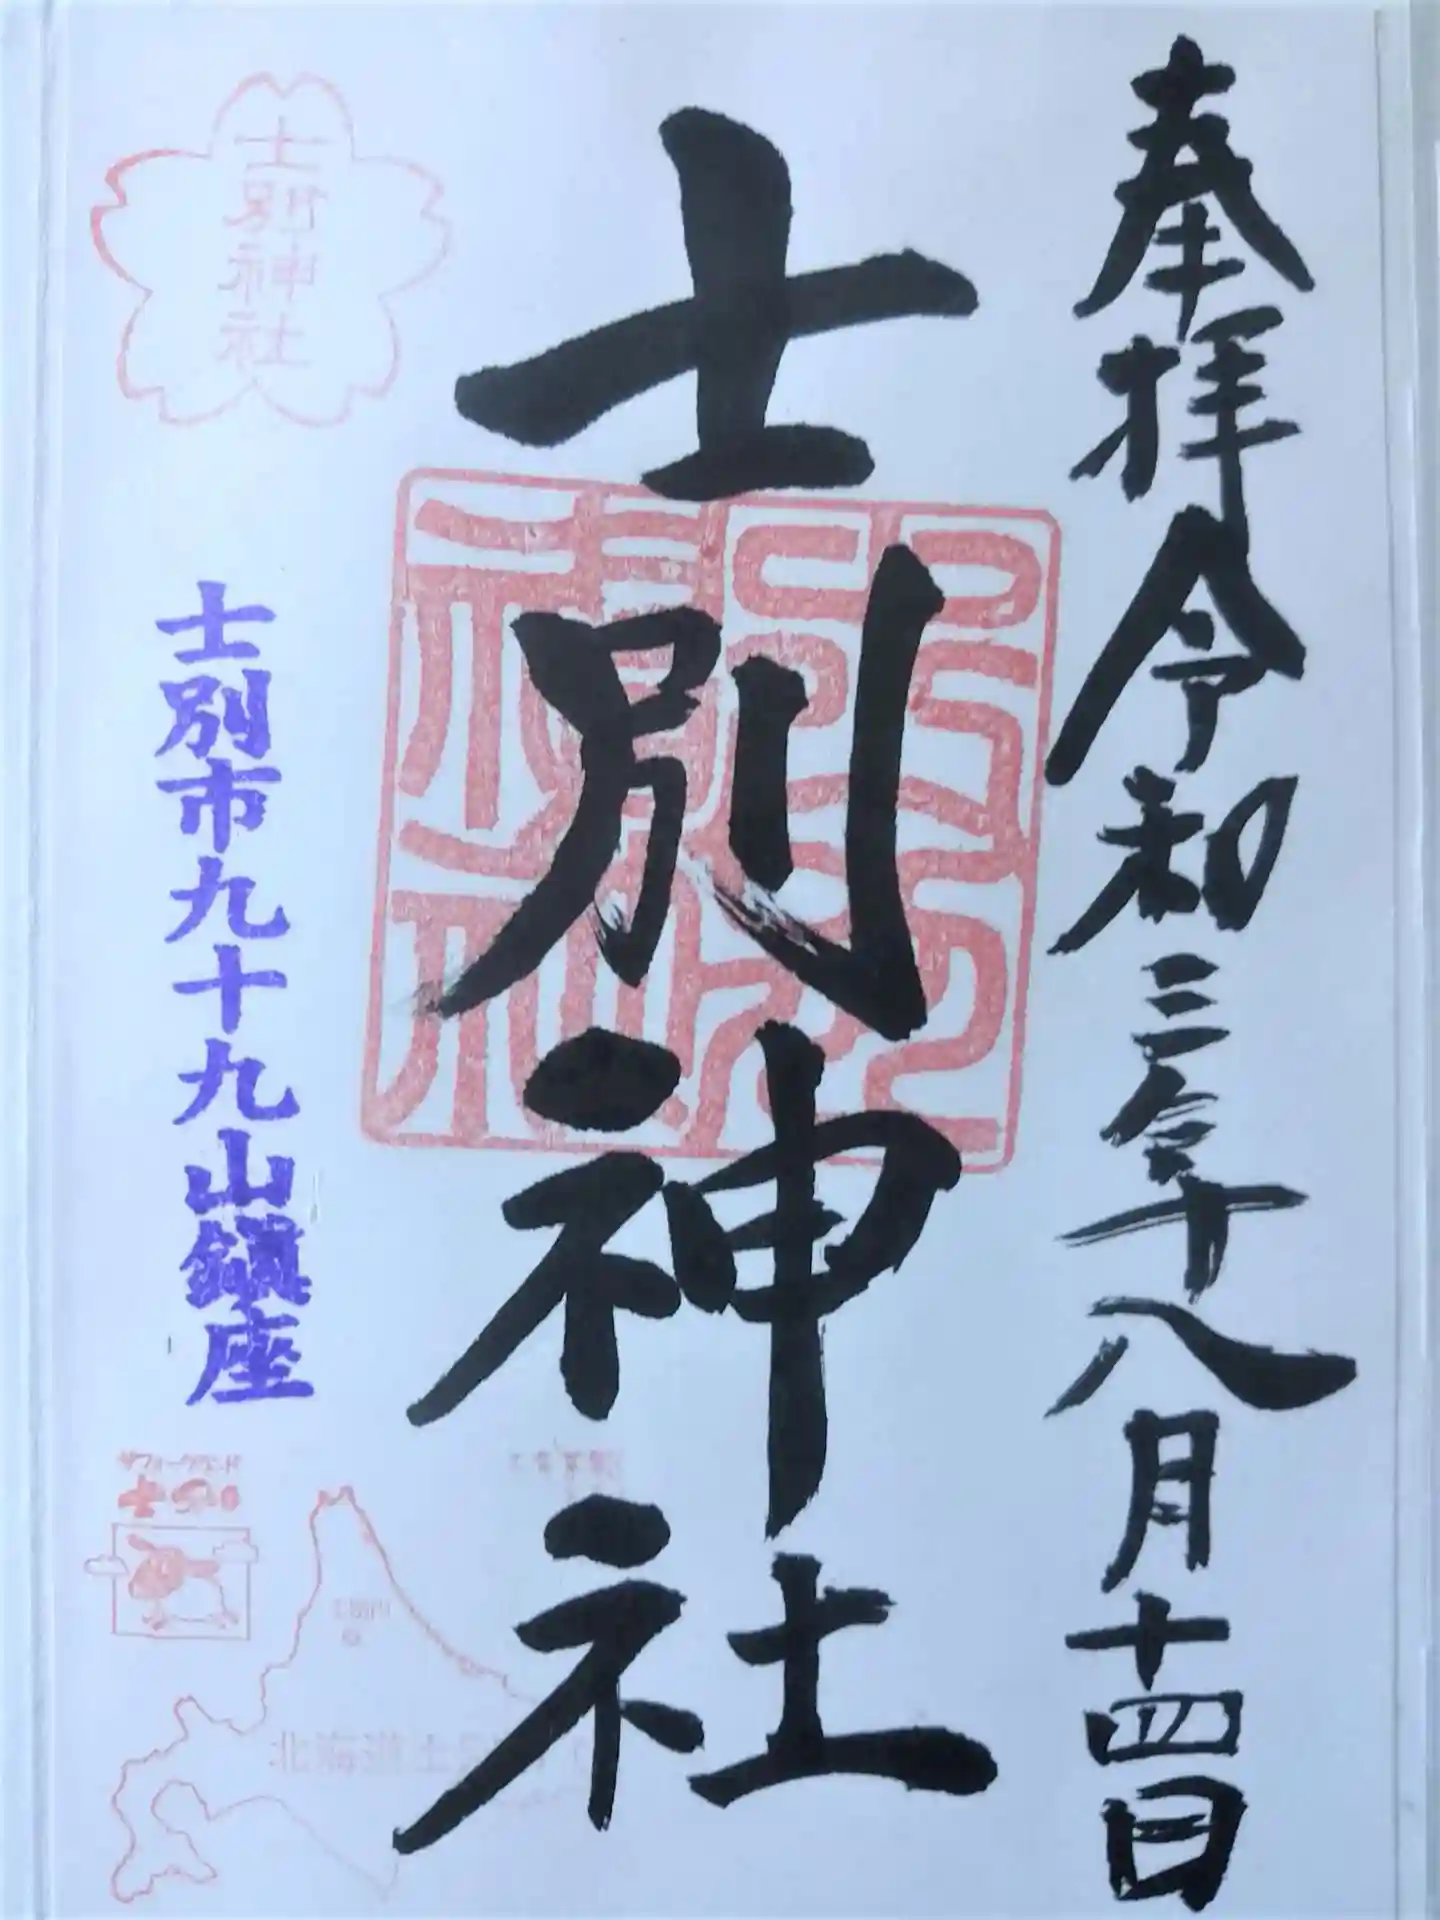 奉拝令和三年八月十四日
士別神社
士別神社
士別市九十九山鎮座
サフォークランド
士別
北海道士別